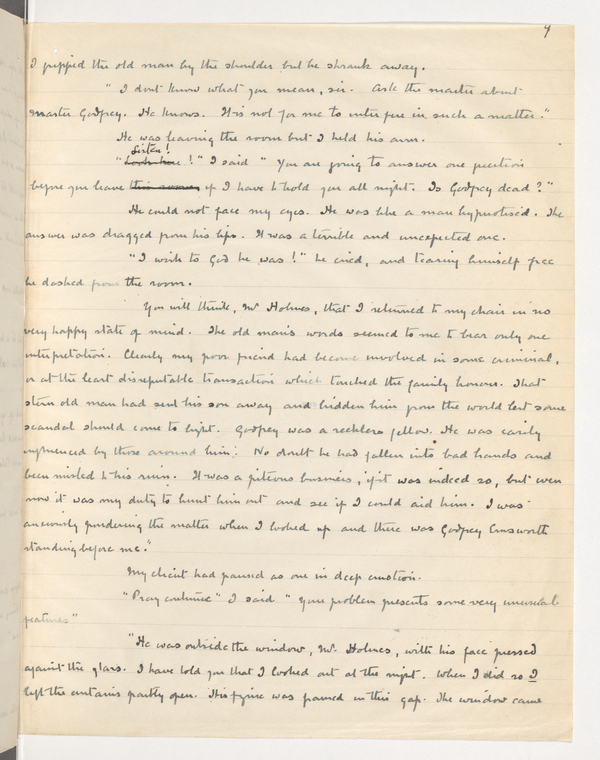 9
I gripped the old man by the shoulder but he shrank away.
" I dont know what you mean, sir. Ask the master about
Master Godfrey. He knows. It is not for me to interfere in such a matter."
He was leaving the room but I held his arm.
Listen!
"Look here !" I said " You are going to answer one question
before you leave if I have to hold you all night. Is Godfrey dead?"
He could not face my eyes. He was like a man hypnotised. The
answer was dragged from his lips. It was a terrible and unexpected one.
"I wish to God he was!" he cried, and tearing himself free
he dashed from the room.
You will think, Mr Holmes, that I returned to my chair in no
very happy state of mind. The old man's words seemed to me to bear only one
interpretation. Clearly my poor friend had become involved in some criminal,
or at the least disreputable transaction which touched the family honour. That
stern old man had sent his son away and hidden him from the world lest some
scandal should come to light. Godfrey was a reckless fellow. He was easily
influenced by those around him. No doubt he had fallen into bad hands and
been misled to his ruin. It was a piteous business, if it was indeed so, but even
now it was my duty to hunt him out and see if I could aid him. I was
anxiously pondering the matter when I looked up and there was Godfrey Emsworth
standing before me."
My client had paused as one in deep emotion.
"Pray continue" I said " Your problem presents some very unusual
features"
"He was outside the window, Mr Holmes, with his face pressed
against the glass. I have told you that I looked out at the night. When I did so I
left the curtains partly open. His figure was framed in this gap. The window came